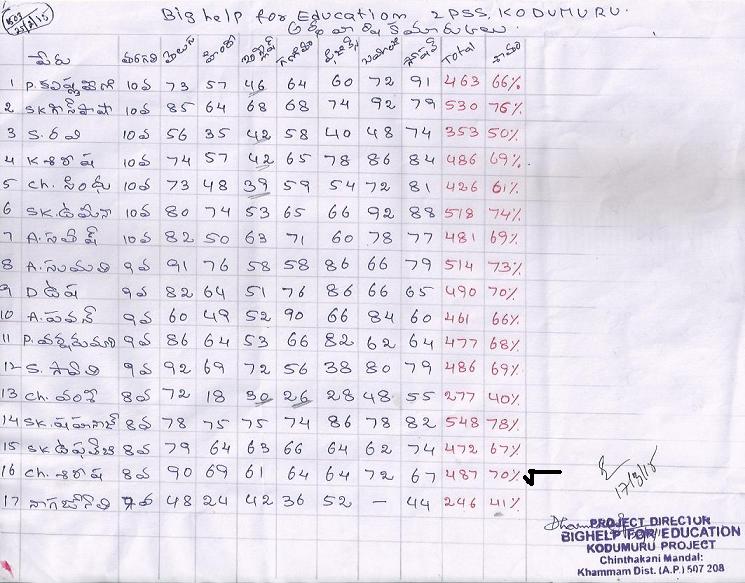 Big help for Education 2PSS. KODUMURU.
పేరు తరగతి తెలుగు హిందీ ఇంగ్లీష్ గణితం Total శాతం
1 P. 10వ 73 57 46 64 60 72 91 463 66%
2 SK 10వ 85 64 68 68 74 92 79 530 76%
3 S. రవి 10వ 56 35 42 58 40 48 74 353 50%
4 K శిరీష 10వ 74 57 42 65 78 86 84 486 69%.
5 Ch. సింధు 10వ 73 48 39 59 54 72 81 426 61%
6 SK. 10వ 80 74 53 65 66 92 88 518 74%
7 A. 10వ 82 50 63 71 60 78 77 481 69%
8 A. సుమతి 9వ 91 76 58 58 86 66 79 514 73%
9 D ఉష 9వ 82 64 51 76 86 66 65 490 70%
10 A. పవన్ 9వ 60 49 52 90 66 84 60 461 66%
11 P. 9వ 86 64 53 66 82 62 64 477 68%
12 S. 9వ 92 69 72 56 38 80 79 486 69%
13 Ch. వంశీ 8వ 72 18 30 26 28 48 55 277 40%
14 SK. 8వ 78 75 75 74 86 78 82 548 78%
15 SK 8వ 79 64 63 66 64 62 74 472 67%
16 Ch. శిరీష 8వ 90 69 61 64 64 72 67 487 70%
17 48 24 42 36 52 – 44 246 41%
17/3/15
PROJECT DIRECTOR
BIGHELP FOR EDUCATION
KODUMURU PROJECT
Chinthakani Mandal:
Khammam Dist. (A.P.) 507 208